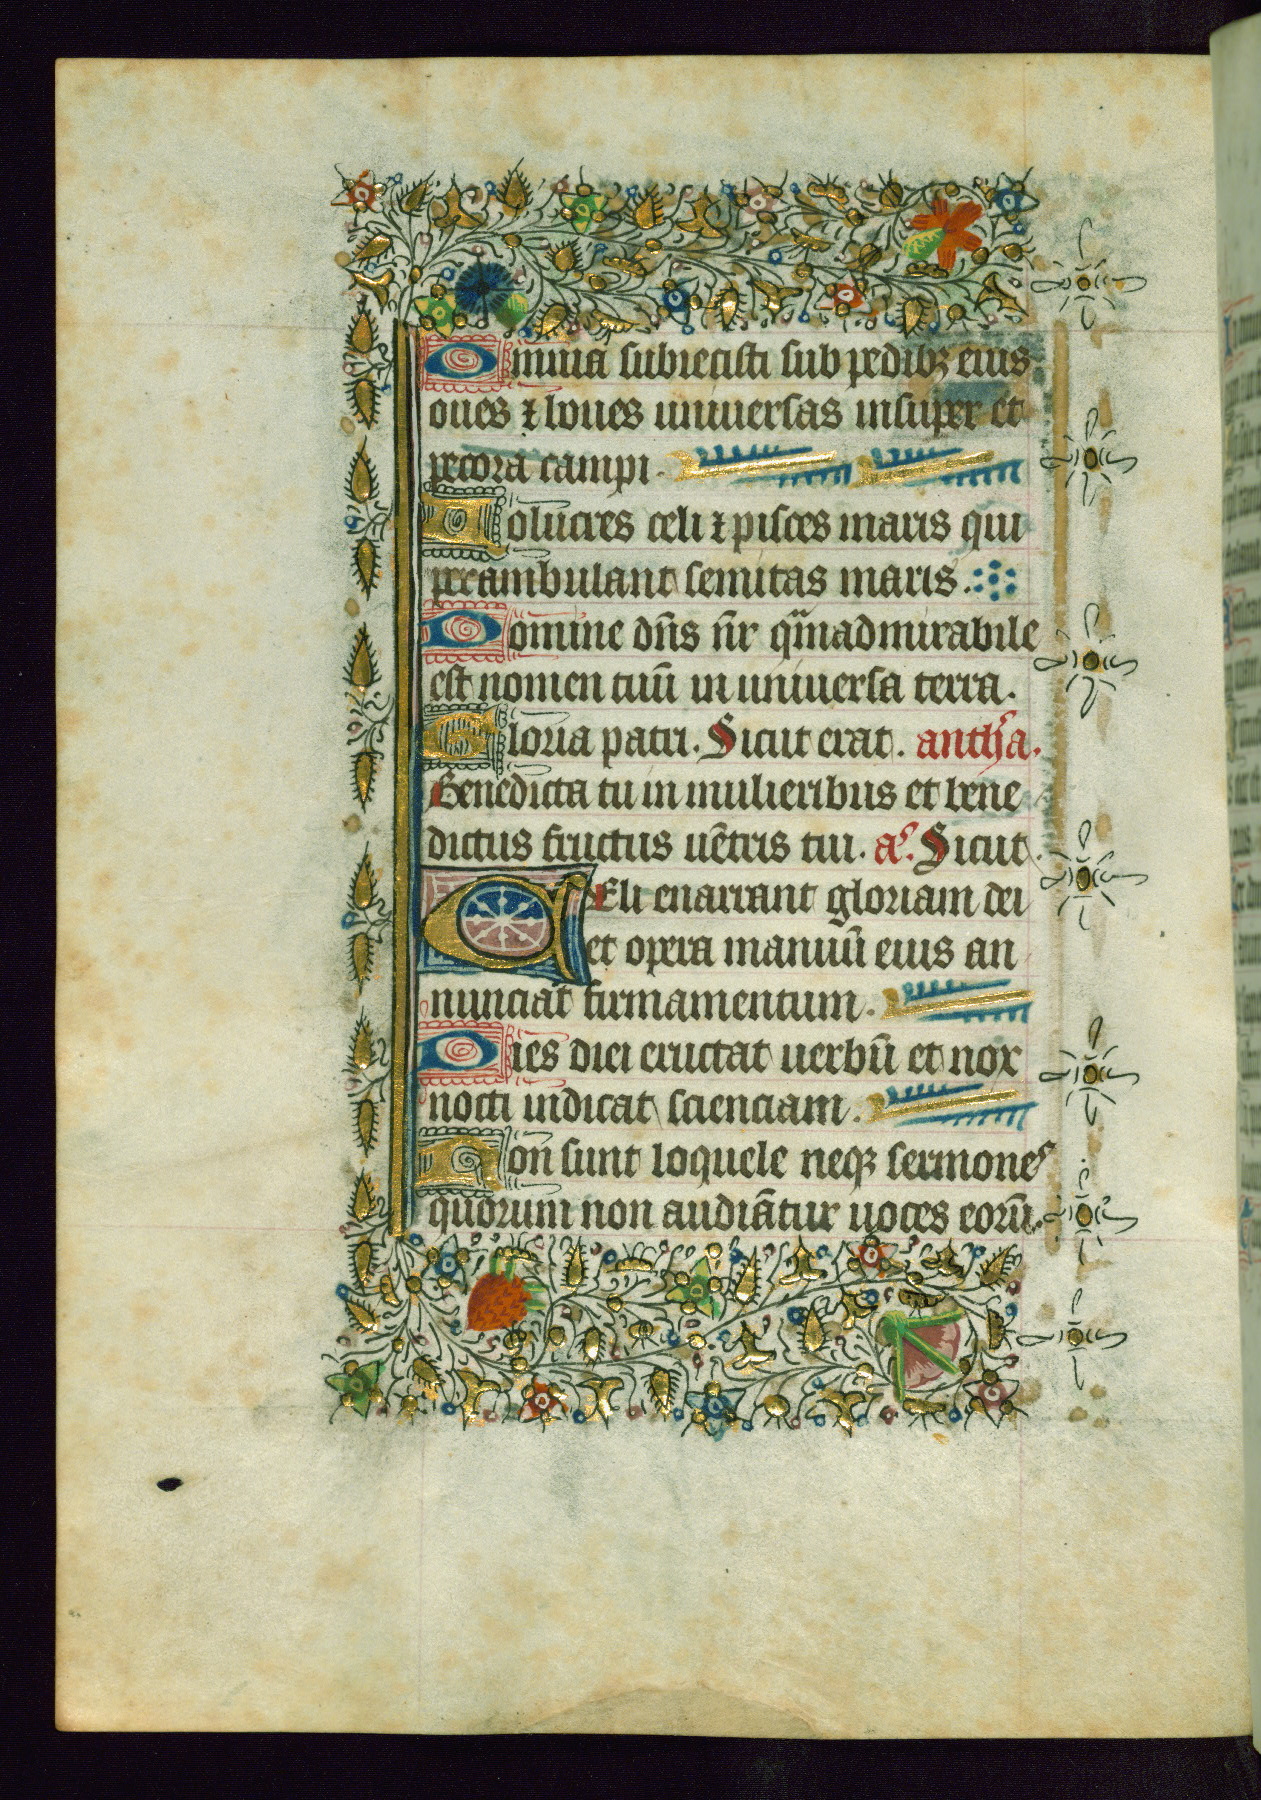 Omnia subiecisti sub pedibꝫ eius
oues ⁊ boues uniuersas insuper et
pecora campi.
Uolucres celi ⁊ pisces maris qui
perambulant semitas maris.
Domine dn̄s nr̄ qm̄admirabile
est nomen tuū in uniuersa terra.
Gloria patri. Sicut erat. anth̕a.
Benedicta tu in mulieribus et bene
dictus fructus uētris tui. a͛. Sicut.
CEli enarrant gloriam dei
et opera manuū eius an
nunciat firmamentum.
Dies diei eructat uerbū et nox
nocti indicat scienciam.
Non sunt loquele neqꝫ sermones
quorum non audiātur uoces eorū.